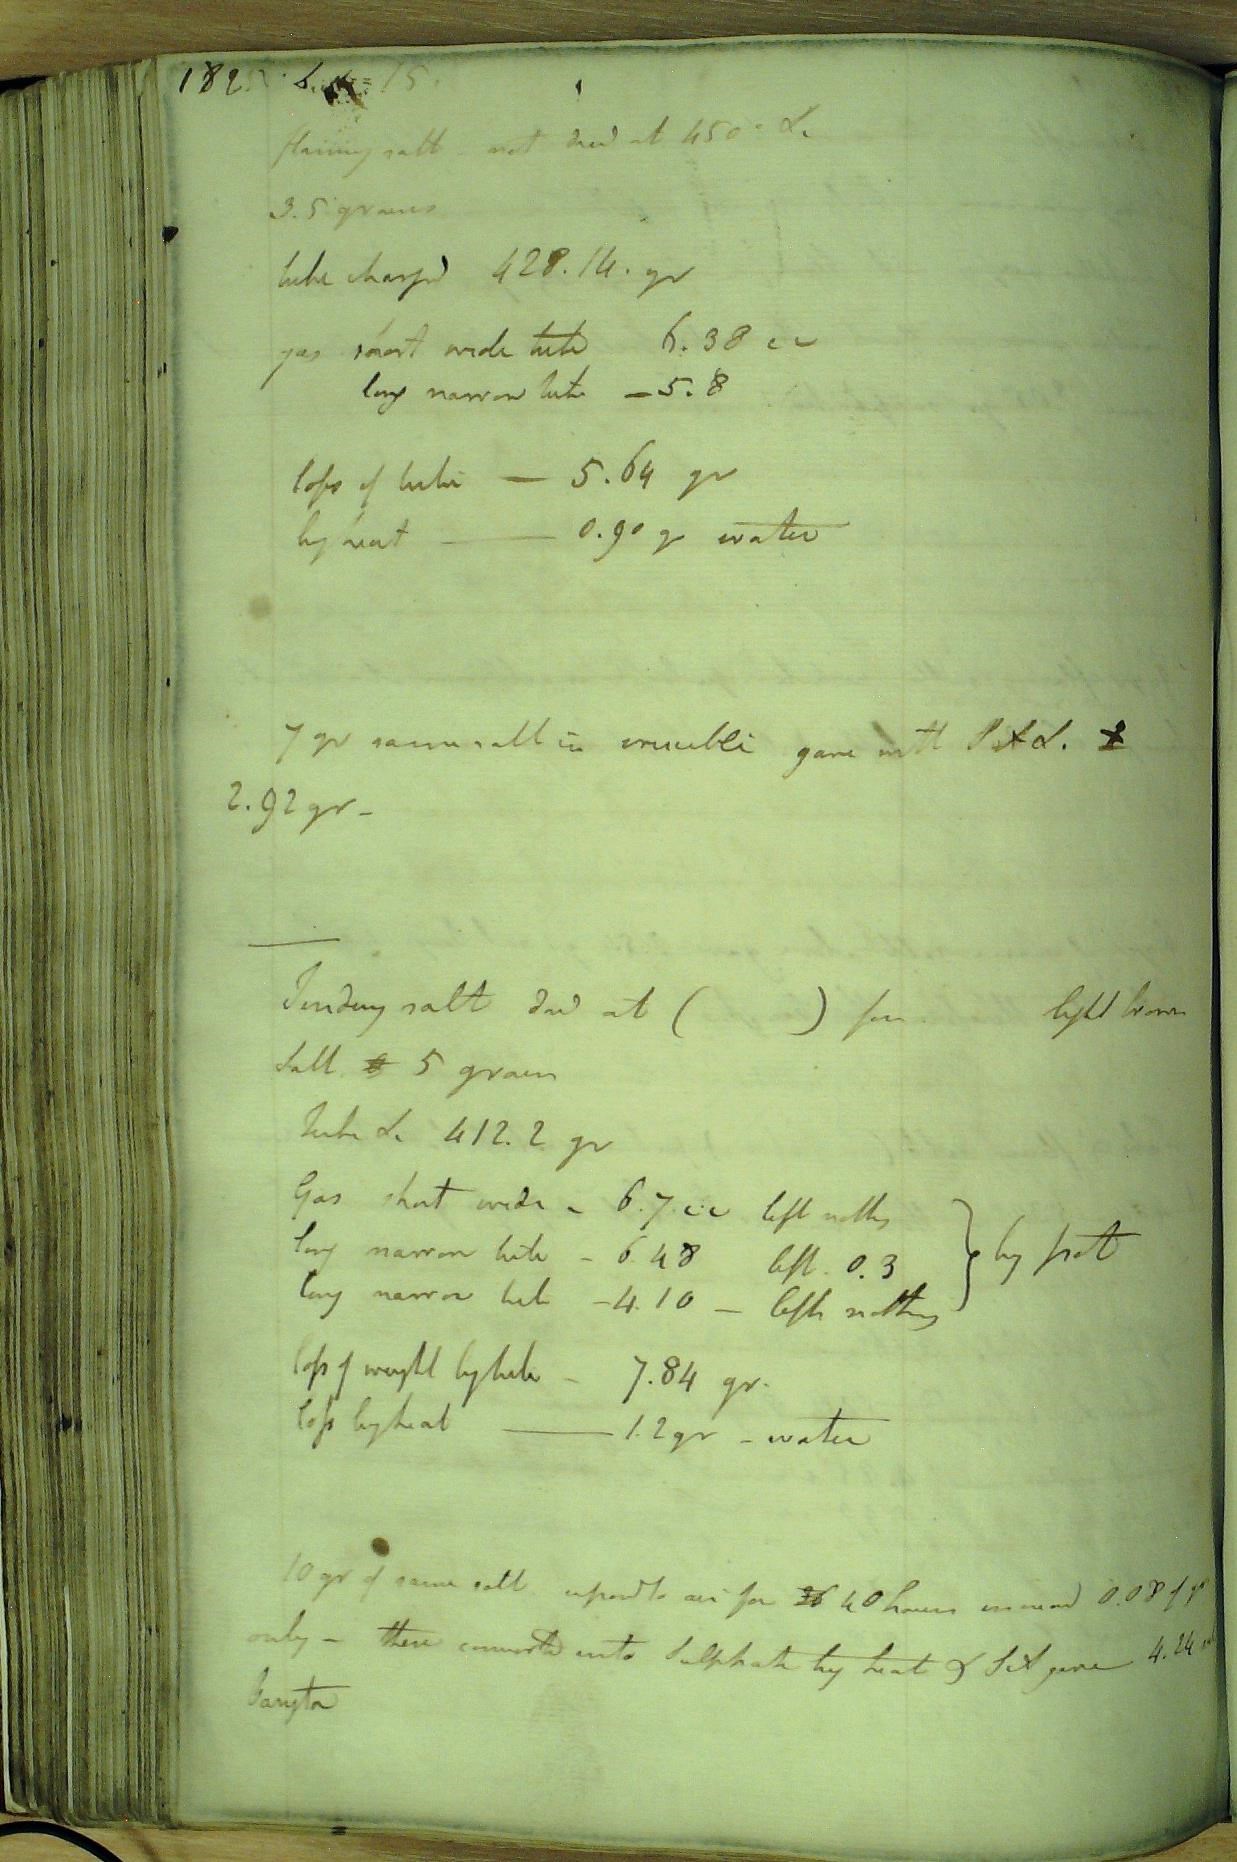 182 15.
flaming salt not dried at 450° &c
3.5 grains
tube charged 428.14. gr
gas short wide tube 6.38 cc
long narrow tube - 5.8
loss of tube — 5.64 gr
by heat — 0.90 gr water
7 gr same salt in crucible gave with S A &.
2.92 gr -
salt dried at ( ) for light brown
Salt 5 grains
tube &c 412.2 gr
Gas short wide - 6.7 cc left nothing
long narrow tube - 6.48 left 0.3
long narrow tube - 4.10 - left nothing } by pot
loss of weight by tube - 7.84 gr.
loss by heat — 1.2 gr - water
10 gr of same salt exposed to air for 40 hours increased 0.08 of gr
only - these converted into Sulphate by heat & S A gave 4.24
Baryta